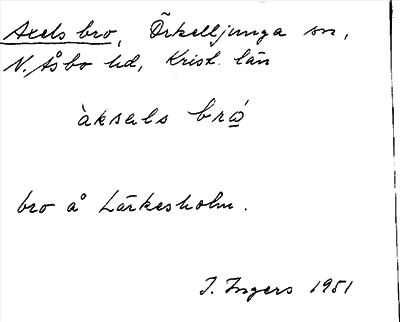 Axels bro, Örkelljunga sn,
N. Åsbo hd, Krist. län
àksals brώ
bro å Lärkesholm.
I. Ingers 1951